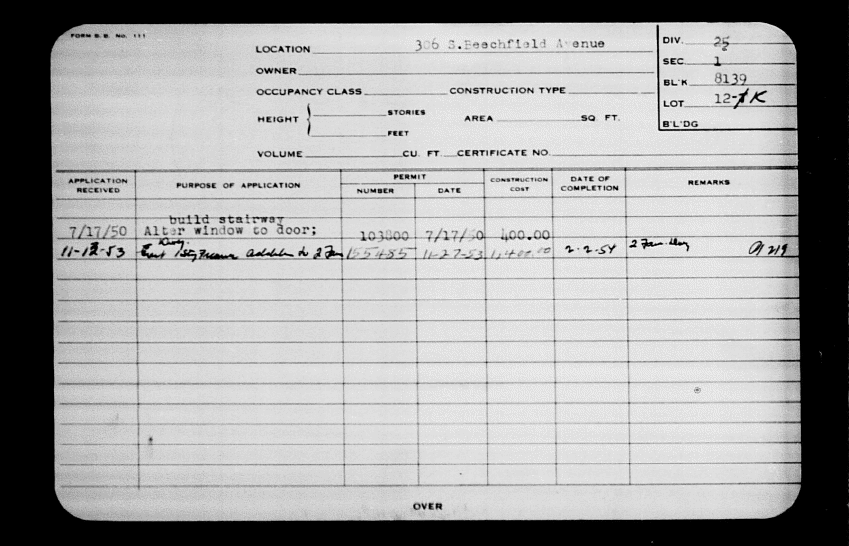 FORM B. B. NO. 111
LOCATION 306 S.Beechfield Avenue
OWNER
OCCUPANCY CLASS CONSTRUCTION TYPE
HEIGHT { STORIES AREA SQ. FT.
FEET
VOLUME CU. FT. CERTIFICATE NO.
DIV. 25
SEC 1
BL'K 8139
LOT 12-1K
B'L'DG
APPLICATION RECEIVED PURPOSE OF APPLICATION PERMIT NUMBER DATE CONSTRUCTION COST DATE OF COMPLETION REMARKS
build stairway
7/17/50 Alter window to door; 103800 7/17/50 400.00
Dwg.
11-12-53 Erect 1 sty Frame addition to 2 Fam 155485 11-27-53 1,400.00 2-2-54 2 Fam. Dwg 219
OVER